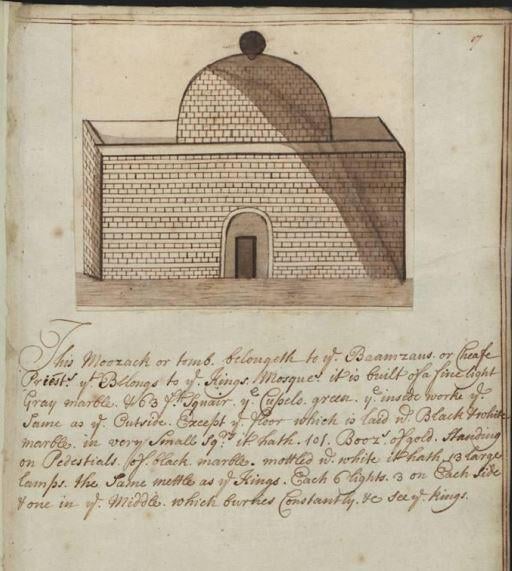 17
This Moozack or tomb. belongeth to yᵉ. Baamzans. or Cheafe
Priestˢ. yᵗ Bllongs to yᵉ. Kings. Mosque. it is built of a fine light
Gray marble. & 63 yᵈˢ Squair. yᵉ Cupelo. green. yᵉ inside worke yᵉ.
Same as yᵉ. Outside. Except yᵉ. floor which is laid wᵗ. Black & white
marble. in very Small Sqʳˢ it hath. 101. Boozˢ. of gold. Standing
on Pedestials. of black. marble. mottled wᵗ. white it hath 13 large
lamps. the Same mettle as yᵉ Kings. Each 6 lights. 3 on Each Side
& one in yᵉ. Middle. which burnes Constantly. &c See yᵉ. kings.